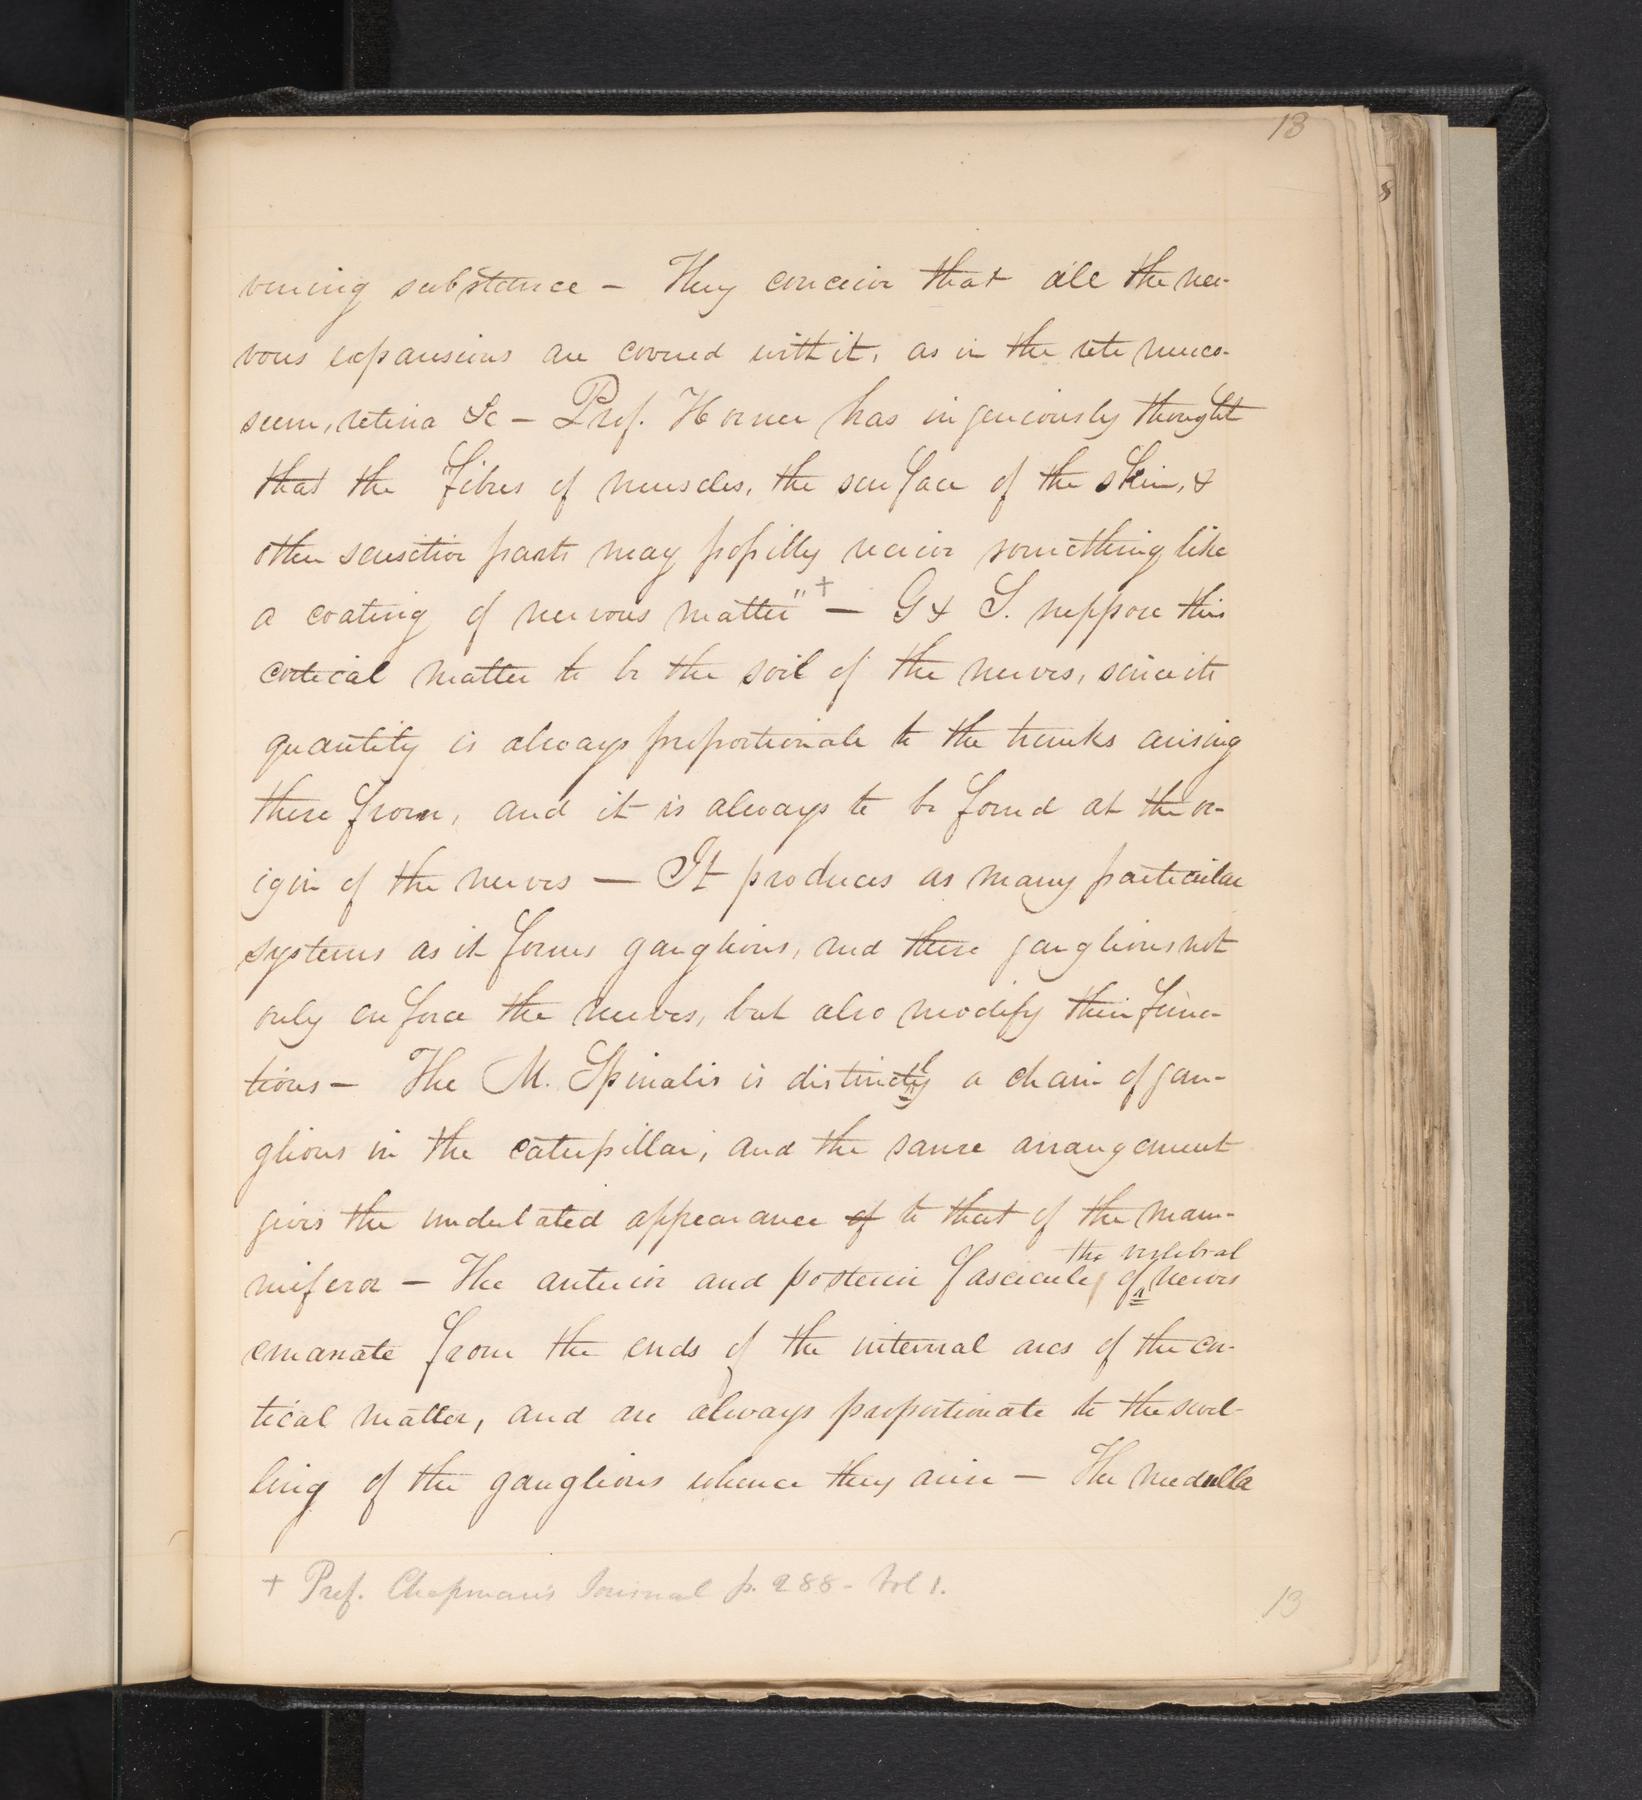 13
8
vening substance – They conceive that all the ner-
vous expansions are covered with it, as in the rete muco-
sum, retina &c – Prof. Horner has ingeniously thought
that the fibres of muscles, the surface of the skin, &
other sensitive parts may possibly receive something like
a coating of nervous matter" + – G & S. suppose this
cortical matter to be the soil of the nerves, since its
quantity is always proportionate to the trunks arising
there from, and it is always to be found at the or-
igin of the nerves – It produces as many particular
systems as it forms ganglions, and these ganglions not
only enforce the nerves, but also modify their func-
tions – The M. Spinalis is distinctly a chain of gan-
glions in the caterpillar, and the same arrangement
gives the undulated appearance of to that of the mam-
the vertebral
mifera – The anterior and posterior fasciculi of nerves
emanate from the ends of the internal arcs of the cor-
tical matter, and are always proportionate to the swel-
ling of the ganglions whence they arise – The medulla
+ Prof. Chapman's Journal p. 288 – Vol 1.
13